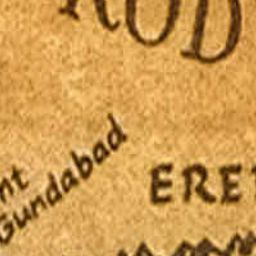 RUD
nt
Gundabad
ERE